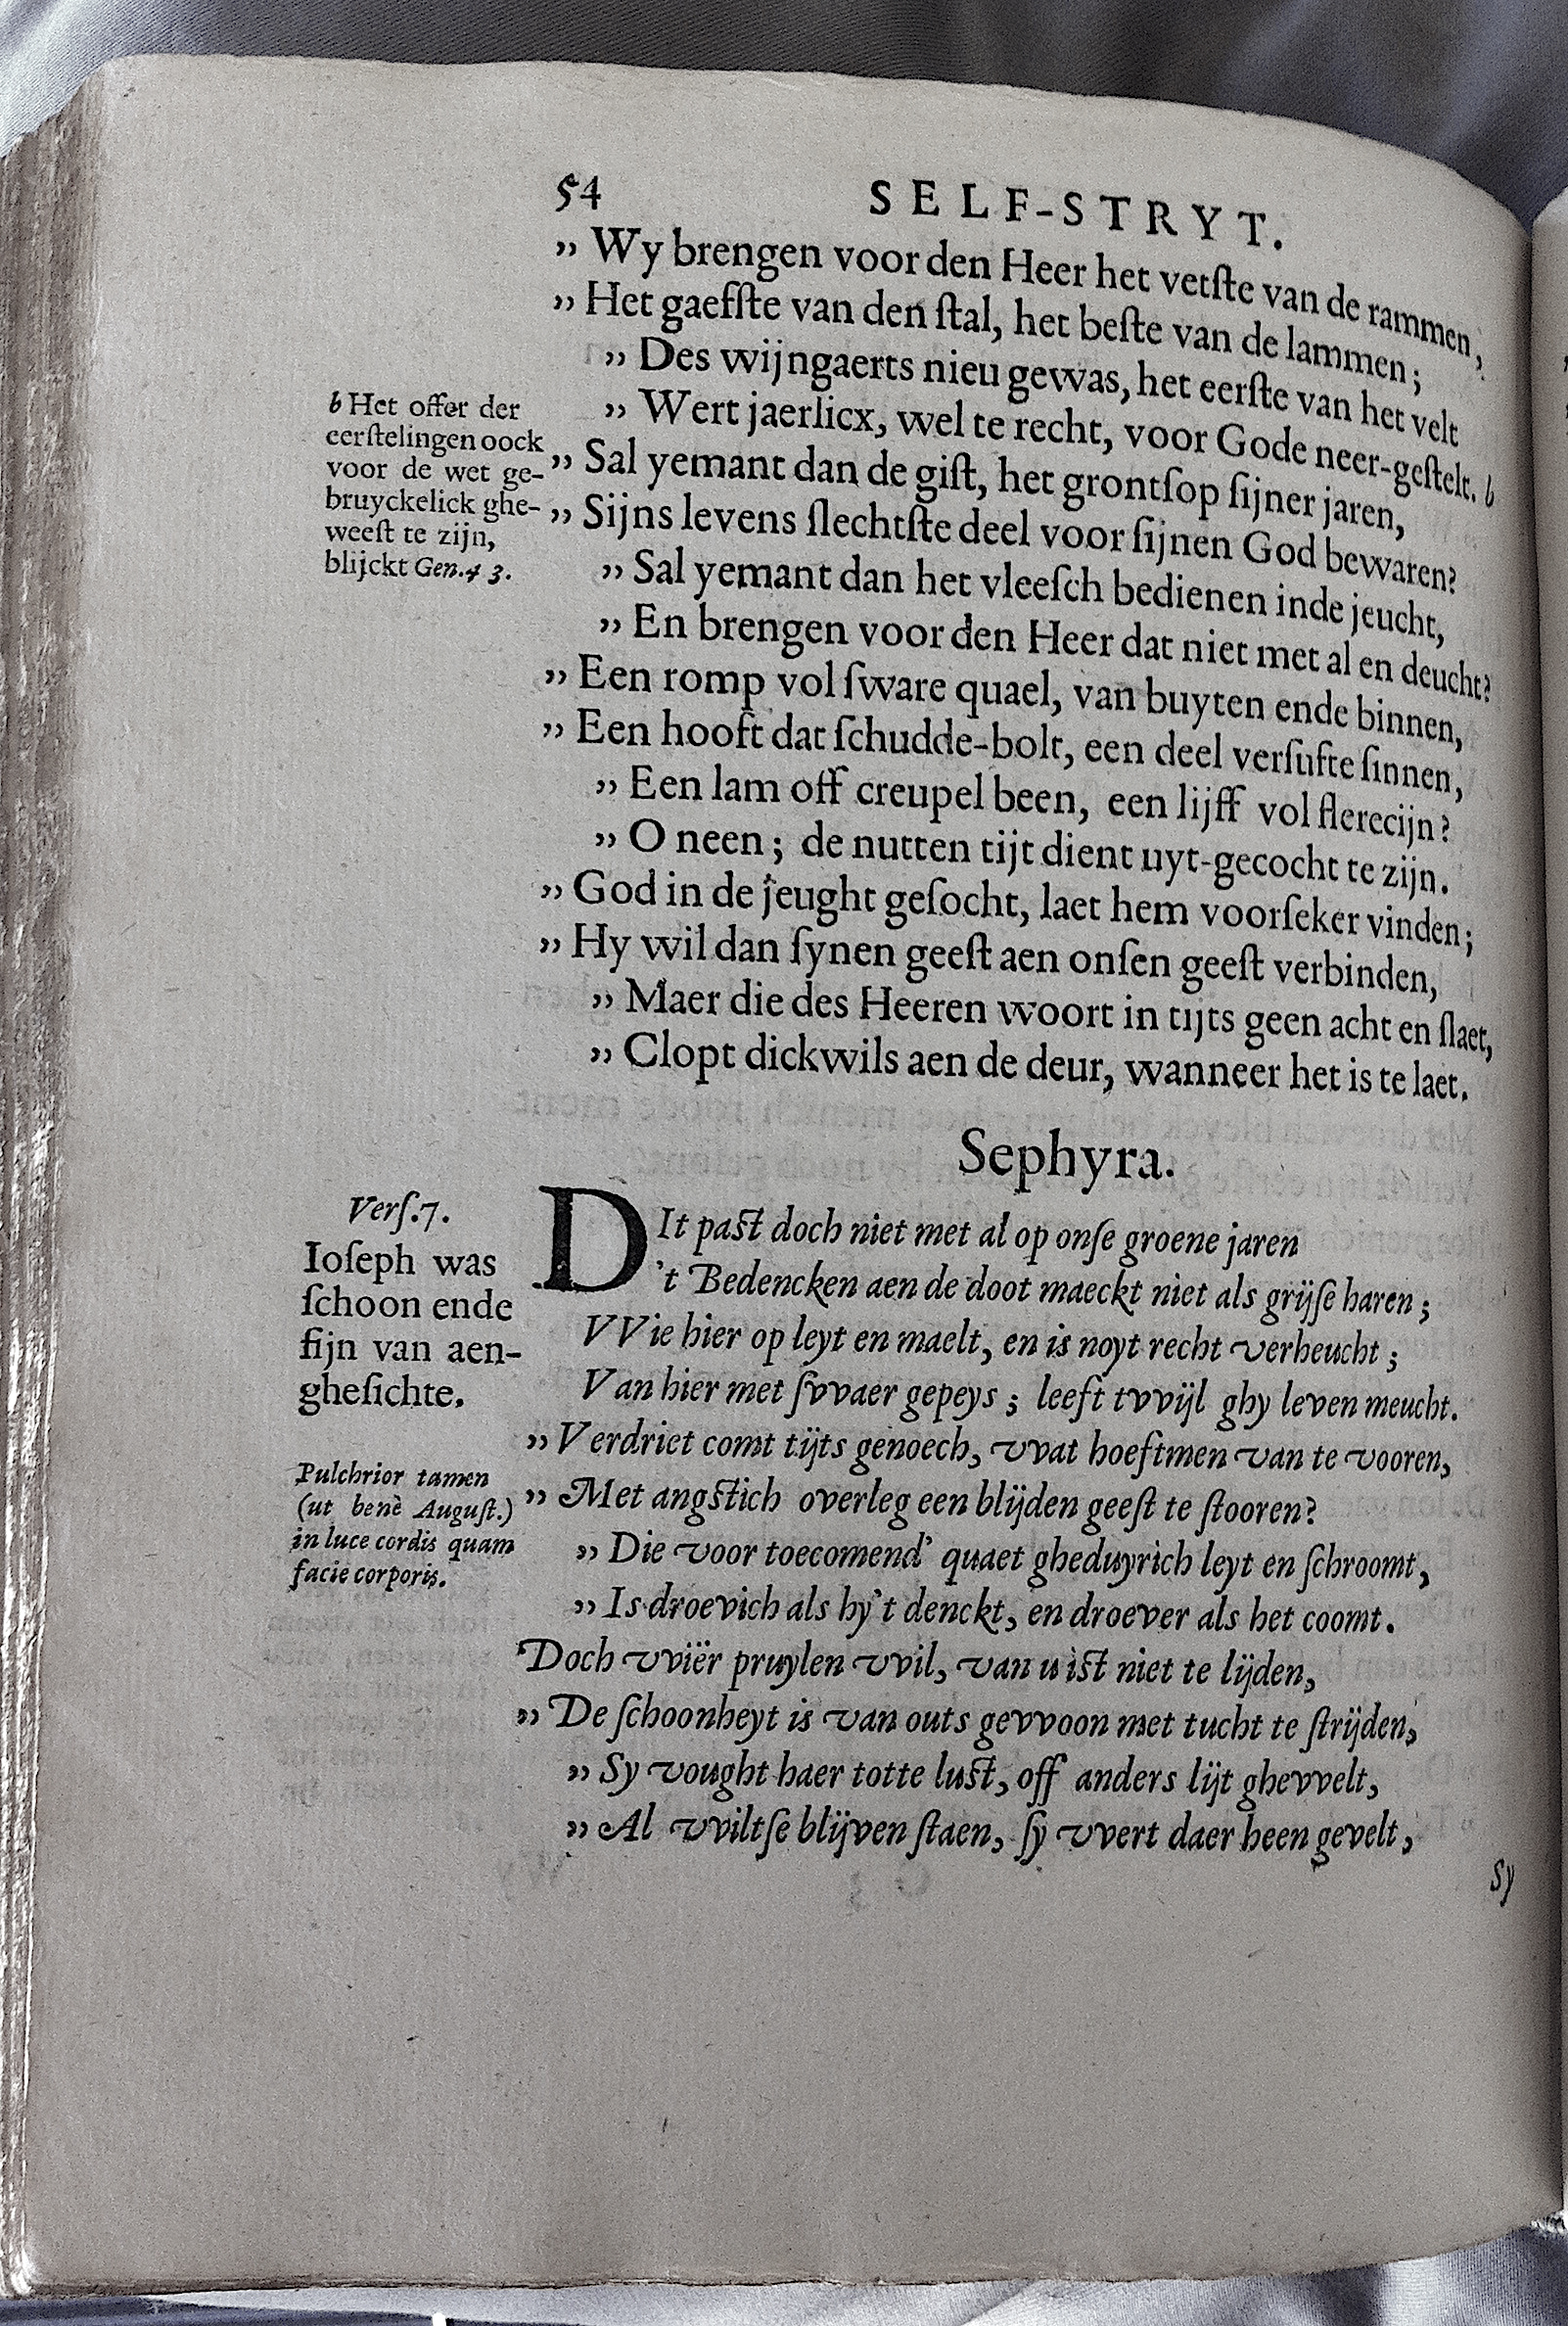 54 SELF-STRYT.
„ Wy brengen voor den Heer het vetſte van de rammen,
„ Het gaefſte van den ſtal, het beſte van de lammen;
„ Des wijngaerts nieu gewas, het eerſte van het velt
„ Wert jaerlicx, wel te recht, voor Gode neer-geſtelt. b
„ Sal yemant dan de giſt, het grontſop ſijner jaren,
„ Sijns levens ſlechtſte deel voor ſijnen God bewaren?
„ Sal yemant dan het vleeſch bedienen inde jeucht,
„ En brengen voor den Heer dat niet met al en deucht?
„ Een romp vol ſware quael, van buyten ende binnen,
„ Een hooft dat ſchudde-bolt, een deel verſufte ſinnen,
„ Een lam off creupel been, een lijff vol flerecijn?
„ O neen; de nutten tijt dient uyt-gecocht te zijn.
„ God in de jeught geſocht, laet hem voorſeker vinden;
„ Hy wil dan ſynen geeſt aen onſen geeſt verbinden,
„ Maer die des Heeren woort in tijts geen acht en ſlaet,
„ Clopt dickwils aen de deur, wanneer het is te laet.
b Het offer der
eerſtelingen oock
voor de wet ge-
bruyckelick ghe-
weeſt te zijn,
blijckt Gen. 4 3.
Sephyra.
DIt paſt doch niet met al op onſe groene jaren
't Bedencken aen de doot maeckt niet als grijſe haren;
VVie hier op leyt en maelt, en is noyt recht verheucht;
Van hier met ſvvaer gepeys; leeft tvvijl ghy leven meucht.
„ Verdriet comt tijts genoech, vvat hoeftmen van te vooren,
„ Met angſtich overleg een blijden geeſt te ſtooren?
„ Die voor toecomend' quaet gheduyrich leyt en ſchroomt,
„ Is droevich als hy't denckt, en droever als het coomt.
Doch vviër pruylen vvil, van u iſt niet te lijden,
„ De ſchoonheyt is van outs gevvoon met tucht te ſtrijden,
„ Sy vought haer totte luſt, off anders lijt ghevvelt,
„ Al vviltſe blijven ſtaen, ſy vvert daer heen gevelt,
Verſ. 7.
Ioſeph was
ſchoon ende
fijn van aen-
gheſichte.
Pulchrior tamen
(ut benè Auguſt.)
in luce cordis quam
facie corporis.
Sy